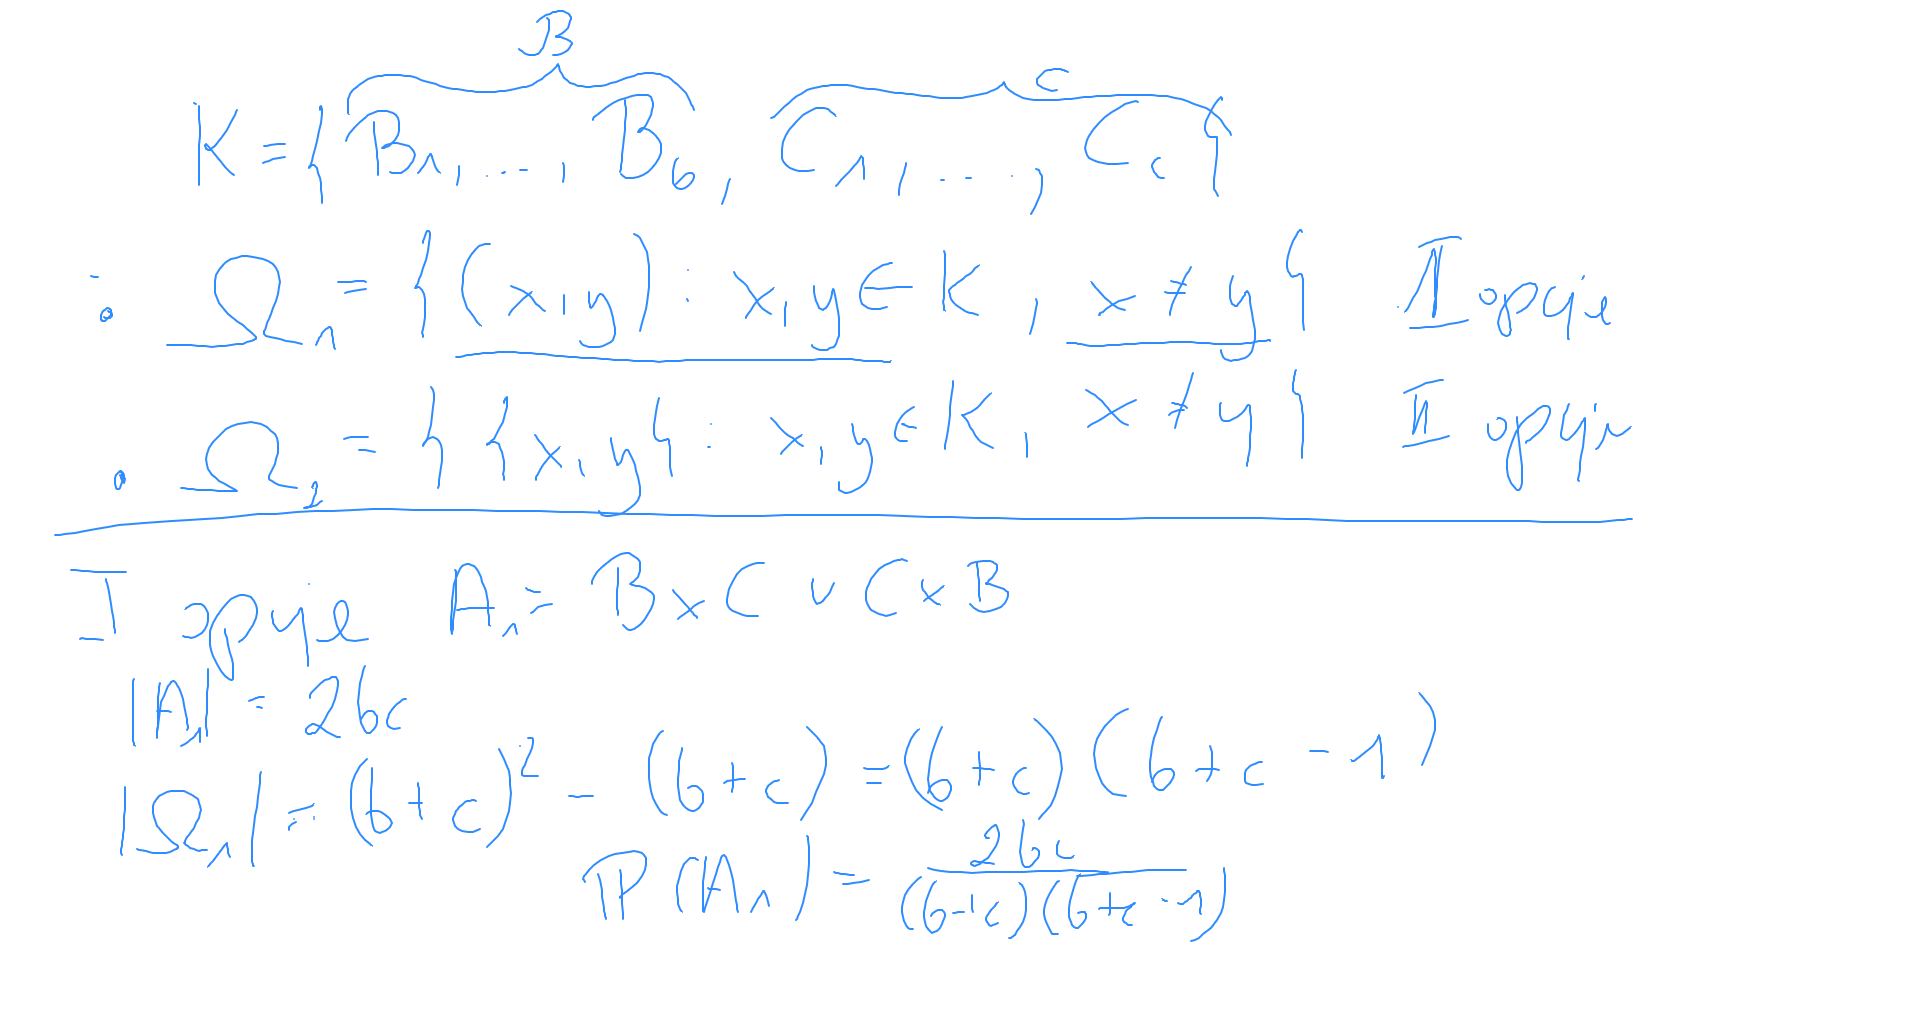 B C
K = { B₁, ..., B_b, C₁, ..., C_c }
Ω₁ = { (x, y) : x, y ∈ K, x ≠ y } I opcja
Ω₂ = { {x, y} : x, y ∈ K, x ≠ y } II opcja
I opcja A₁ = B × C ∪ C × B
|A₁| = 2bc
|Ω₁| = (b + c)² − (b + c) = (b + c)(b + c − 1)
P(A₁) = 2bc / (b+c)(b+c−1)